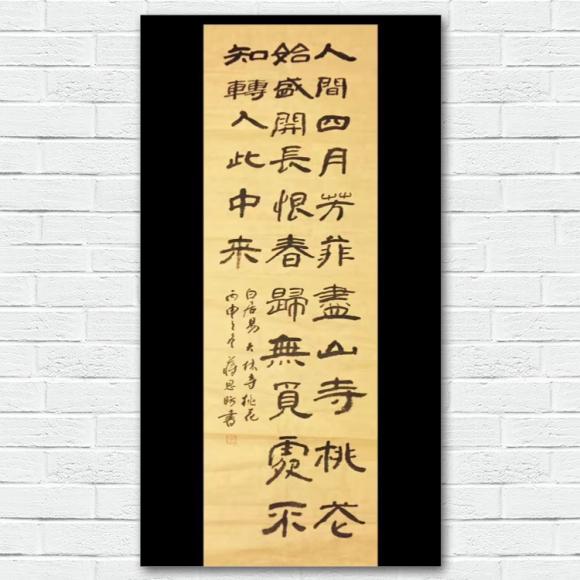 人間四月芳菲盡山寺桃花
始盛開長恨春歸無覓處不
知轉入此中来
白居易大林寺桃花
丙申之蔣書